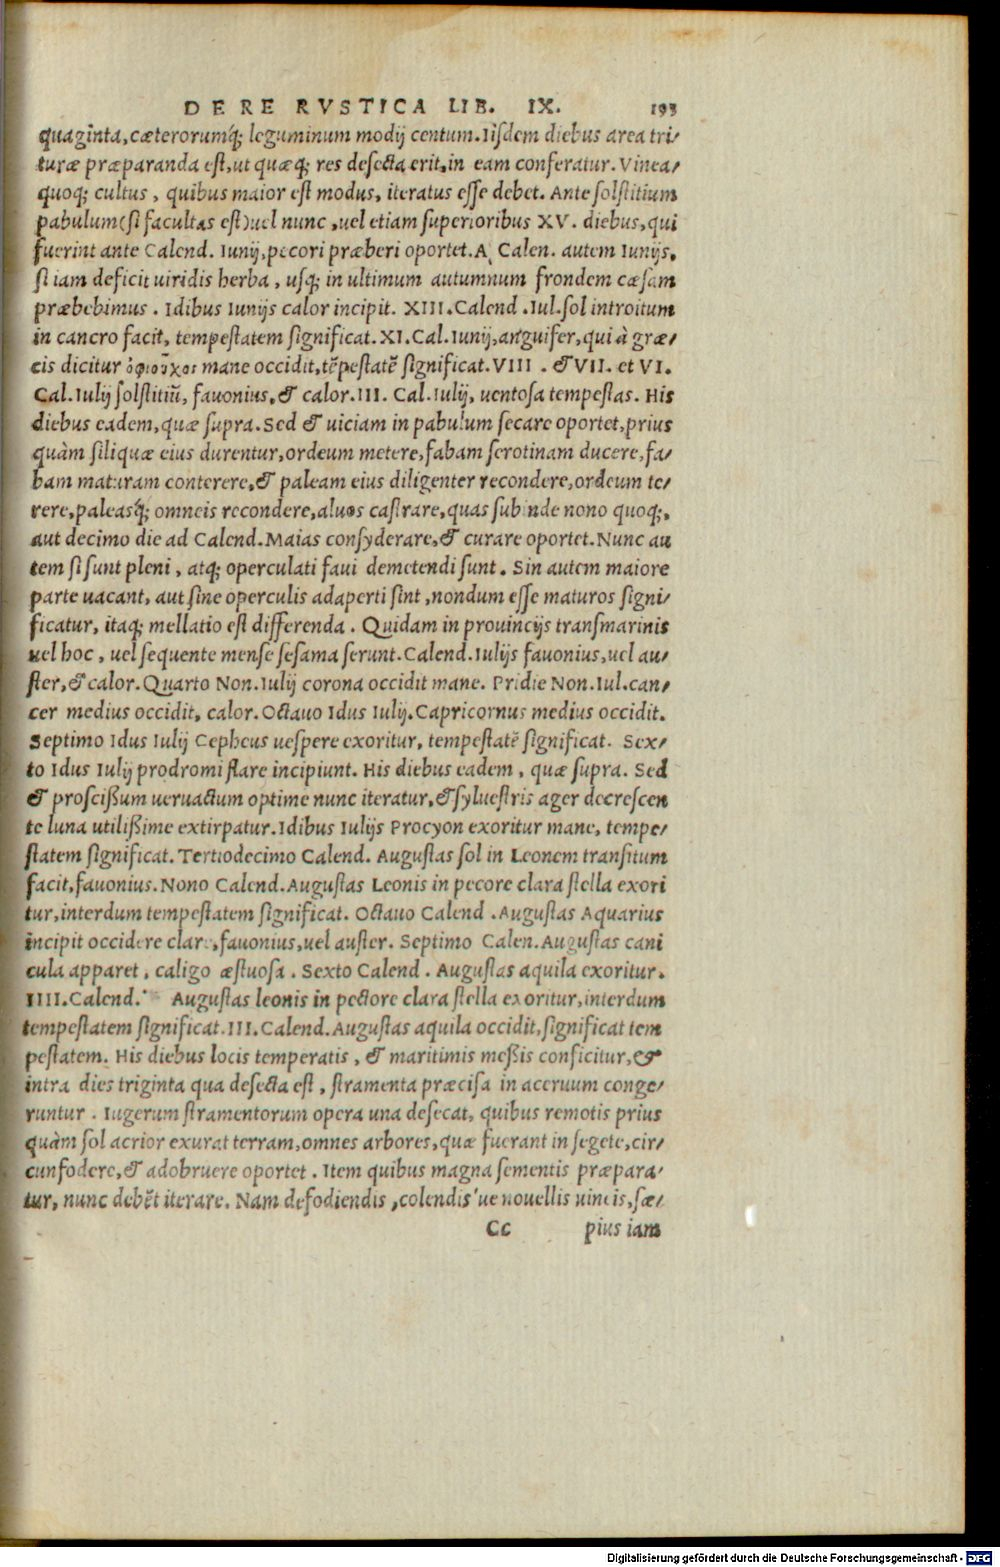 DE RE RVSTICA LIB. IX. 193
quaginta, cæterorumq́; leguminum modij centum. Iisdem diebus area tri/
turæ præparanda est, ut quæq; res desecta erit, in eam conferatur. Vinea/
quoq; cultus, quibus maior est modus, iteratus esse debet. Ante solstitium
pabulum (si facultas est) uel nunc, uel etiam superioribus XV. diebus, qui
fuerint ante Calend. Iunij, pecori præberi oportet. A Calen. autem Iunijs,
si iam deficit uiridis herba, usq; in ultimum autumnum frondem cæsam
præbebimus. Idibus Iunijs calor incipit. XIII. Calend. Iul. sol introitum
in cancro facit, tempestatem significat. XI. Cal. Iunij, anguifer, qui à græ/
cis dicitur ὀφιοῦχος mane occidit, tẽpestatẽ significat. VIII. & VII. et VI.
Cal. Iulij solstitiũ, fauonius, & calor. III. Cal. Iulij, uentosa tempestas. His
diebus eadem, quæ supra. Sed & uiciam in pabulum secare oportet, prius
quàm siliquæ eius durentur, ordeum metere, fabam serotinam ducere, fa/
bam maturam conterere, & paleam eius diligenter recondere, ordeum te/
rere, paleasq́; omneis recondere, aluos castrare, quas subinde nono quoq;,
aut decimo die ad Calend. Maias consyderare, & curare oportet. Nunc au
tem si sunt pleni, atq; operculati faui demetendi sunt. Sin autem maiore
parte uacant, aut sine operculis adaperti sint, nondum esse maturos signi/
ficatur, itaq; mellatio est differenda. Quidam in prouincijs transmarinis
uel hoc, uel sequente mense sesama serunt. Calend. Iulijs fauonius, uel au/
ster, & calor. Quarto Non. Iulij corona occidit mane. Pridie Non. Iul. can/
cer medius occidit, calor. Octauo Idus Iulij. Capricornus medius occidit.
Septimo Idus Iulij Cepheus uespere exoritur, tempestatẽ significat. Sex/
to Idus Iulij prodromi flare incipiunt. His diebus eadem, quæ supra. Sed
& proscißum ueruactum optime nunc iteratur, & syluestris ager decrescen
te luna utilißime extirpatur. Idibus Iulijs Procyon exoritur mane, tempe/
statem significat. Tertiodecimo Calend. Augustas sol in Leonem transitum
facit, fauonius. Nono Calend. Augustas Leonis in pecore clara stella exori
tur, interdum tempestatem significat. Octauo Calend. Augustas Aquarius
incipit occidere clare, fauonius, uel auster. Septimo Calen. Augustas cani
cula apparet, caligo æstuosa. Sexto Calend. Augustas aquila exoritur.
IIII. Calend. Augustas leonis in pectore clara stella exoritur, interdum
tempestatem significat. III. Calend. Augustas aquila occidit, significat tem
pestatem. His diebus locis temperatis, & maritimis meßis conficitur, &
intra dies triginta qua desecta est, stramenta præcisa in aceruum conge/
runtur. Iugerum stramentorum opera una desecat, quibus remotis prius
quàm sol acrior exurat terram, omnes arbores, quæ fuerant in segete, cir/
cunfodere, & adobruere oportet. Item quibus magna sementis præpara/
tur, nunc debẽt iterare. Nam defodiendis, colendis'ue nouellis uineis, sæ/
Cc pius iam
Digitalisierung gefördert durch die Deutsche Forschungsgemeinschaft - DFG